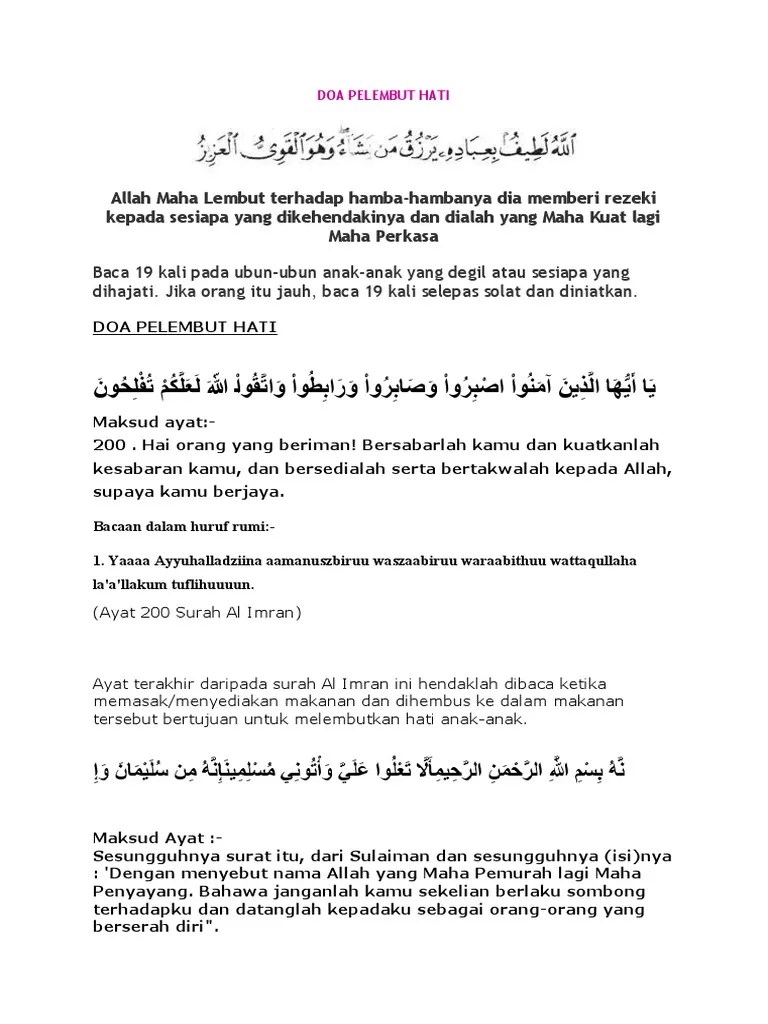 DOA PELEMBUT HATI
اللَّهُ لَطِيفٌ بِعِبَادِهِ يَرْزُقُ مَن يَشَاءُ ۖ وَهُوَ الْقَوِيُّ الْعَزِيزُ
Allah Maha Lembut terhadap hamba-hambanya dia memberi rezeki
kepada sesiapa yang dikehendakinya dan dialah yang Maha Kuat lagi
Maha Perkasa
Baca 19 kali pada ubun-ubun anak-anak yang degil atau sesiapa yang
dihajati. Jika orang itu jauh, baca 19 kali selepas solat dan diniatkan.
DOA PELEMBUT HATI
يَا أَيُّهَا الَّذِينَ آمَنُواْ اصْبِرُواْ وَصَابِرُواْ وَرَابِطُواْ وَاتَّقُواْ اللّهَ لَعَلَّكُمْ تُفْلِحُونَ
Maksud ayat:-
200 . Hai orang yang beriman! Bersabarlah kamu dan kuatkanlah
kesabaran kamu, dan bersedialah serta bertakwalah kepada Allah,
supaya kamu berjaya.
Bacaan dalam huruf rumi:-
1. Yaaaa Ayyuhalladziina aamanuszbiruu waszaabiruu waraabithuu wattaqullaha
la'a'llakum tuflihuuuun.
(Ayat 200 Surah Al Imran)
Ayat terakhir daripada surah Al Imran ini hendaklah dibaca ketika
memasak/menyediakan makanan dan dihembus ke dalam makanan
tersebut bertujuan untuk melembutkan hati anak-anak.
نَّهُ بِسْمِ اللَّهِ الرَّحْمَنِ الرَّحِيمِأَلَّا تَعْلُوا عَلَيَّ وَأْتُونِي مُسْلِمِينَإِنَّهُ مِن سُلَيْمَانَ وَإِ
Maksud Ayat :-
Sesungguhnya surat itu, dari Sulaiman dan sesungguhnya (isi)nya
: 'Dengan menyebut nama Allah yang Maha Pemurah lagi Maha
Penyayang. Bahawa janganlah kamu sekelian berlaku sombong
terhadapku dan datanglah kepadaku sebagai orang-orang yang
berserah diri".